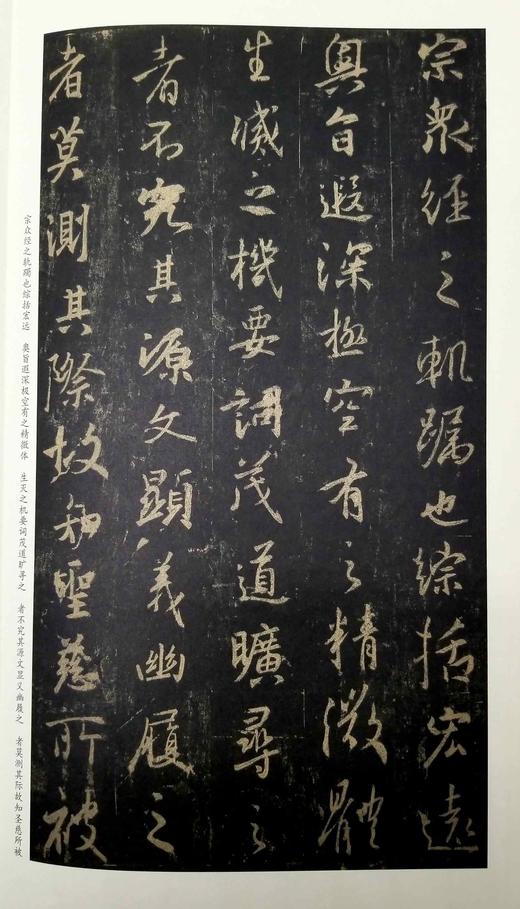 宗衆經之軌躅也綜括宏遠
奧旨遐深極空有之精微體
生滅之機要詞茂道曠尋之
者不究其源文顯義幽履之
者莫測其際故知聖慈所被
宗众经之轨躅也综括宏远 奥旨遐深极空有之精微体 生灭之机要词茂道旷寻之 者不究其源文显义幽履之 者莫测其际故知圣慈所被